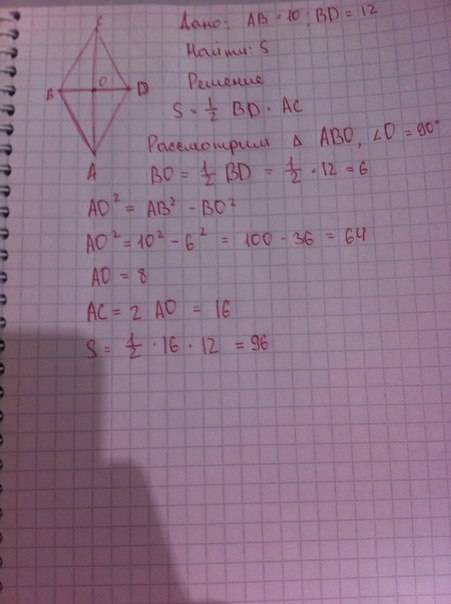 C
B
O
D
A
Дано: AB = 10; BD = 12
Найти: S
Решение
S = 1/2 BD · AC
Рассмотрим Δ ABO, ∠O = 90°
BO = 1/2 BD = 1/2 · 12 = 6
AO² = AB² - BO²
AO² = 10² - 6² = 100 - 36 = 64
AO = 8
AC = 2 AO = 16
S = 1/2 · 16 · 12 = 96